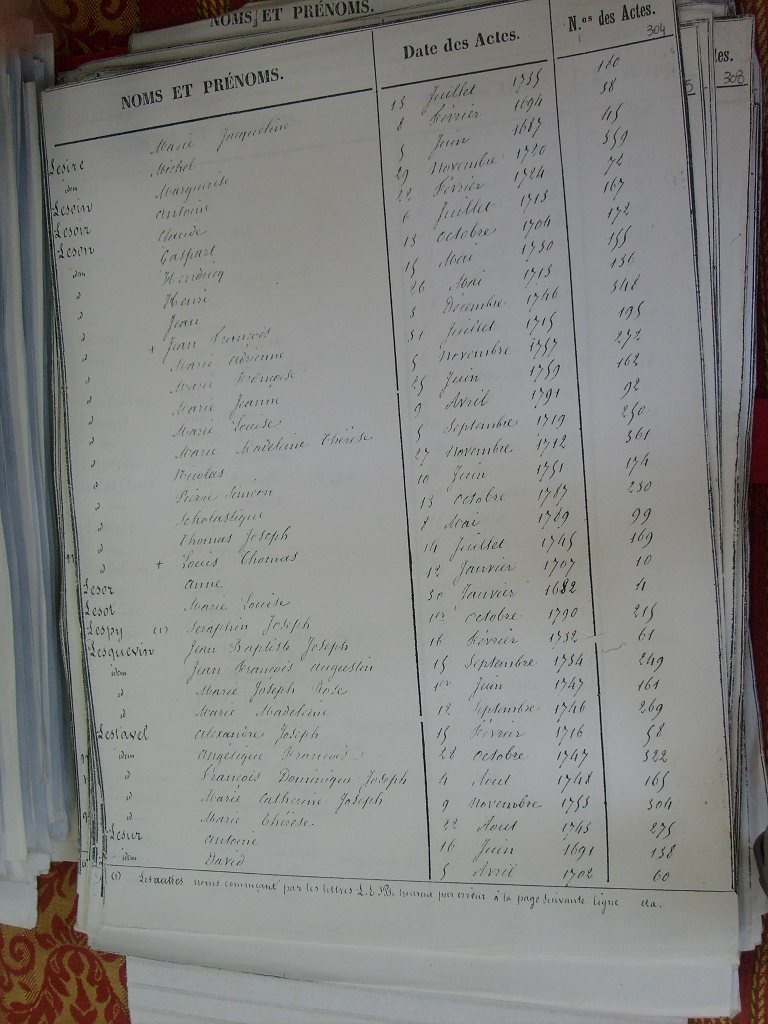 NOMS ET PRÉNOMS.
NOMS ET PRÉNOMS. Date des Actes. N.os des Actes. 304
tes. 308
Lesire Marie Jacqueline 13 Juillet 1735 180
idem Michel 8 Février 1694 38
Lesoin Marguerite 5 Juin 1687 45
Lesoir Antoine 29 Novembre 1720 359
Leson Claude 22 Février 1724 72
idem Gaspart 6 Juillet 1713 167
d Hendricq 13 Octobre 1704 172
d Henri 15 Mai 1730 155
d Jean 26 Mai 1713 136
d + Jean François 3 Décembre 1746 348
d Marie Adrienne 31 Juillet 1715 195
d Marie Françoise 5 Novembre 1757 272
d Marie Jeanne 25 Juin 1759 162
d Marie Louise 9 Avril 1791 92
d Marie Madeleine Thérèse 5 Septembre 1719 250
d Nicolas 27 Novembre 1712 361
d Pierre Siméon 10 Juin 1751 174
d Scholastique 13 Octobre 1787 230
d Thomas Joseph 8 Mai 1789 99
d + Louis Thomas 14 Juillet 1745 169
Lesor Anne 12 Janvier 1707 10
Lesot Marie Louise 30 Janvier 1682 4
Lespy (1) Séraphin Joseph 1er Octobre 1790 215
Lesquevin Jean Baptiste Joseph 16 Février 1732 61
idem Jean François Augustin 15 Septembre 1734 249
d Marie Joseph Rose 1er Juin 1747 161
d Marie Madeleine 12 Septembre 1746 269
Lestavel Alexandre Joseph 15 Février 1716 58
idem Angélique François 28 Octobre 1747 322
d François Dominique Joseph 4 Aout 1748 165
d Marie Catherine Joseph 9 Novembre 1753 304
d Marie Thérèse 22 Aout 1743 275
Lesur Antoine 16 Juin 1691 138
idem David 5 Avril 1702 60
(1) Les autres noms commçant par les lettres L.E.S.P. se trouvent par erreur à la page suivante ligne